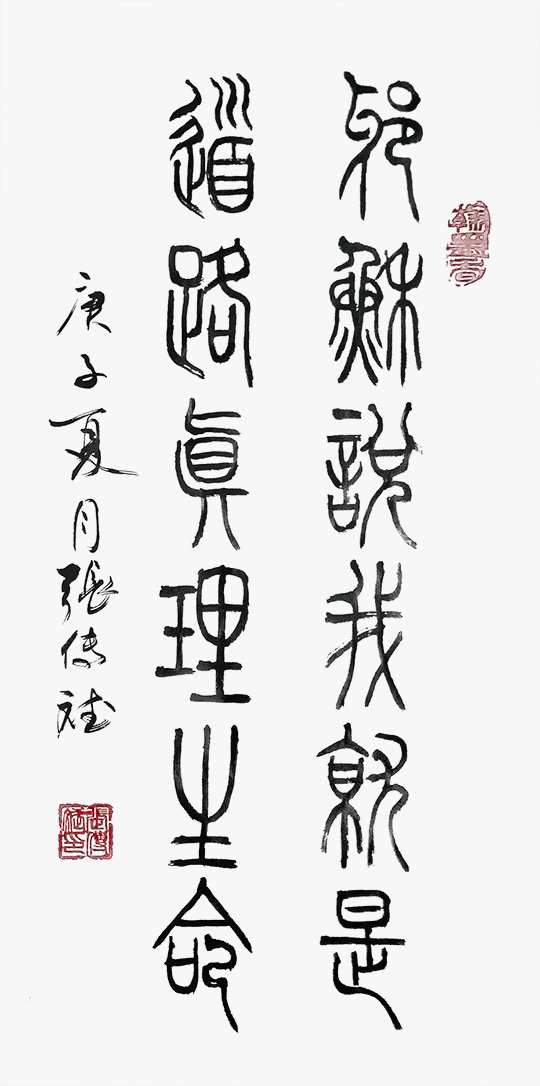 耶穌說我就是
道路眞理生命
庚子夏月張傳斌